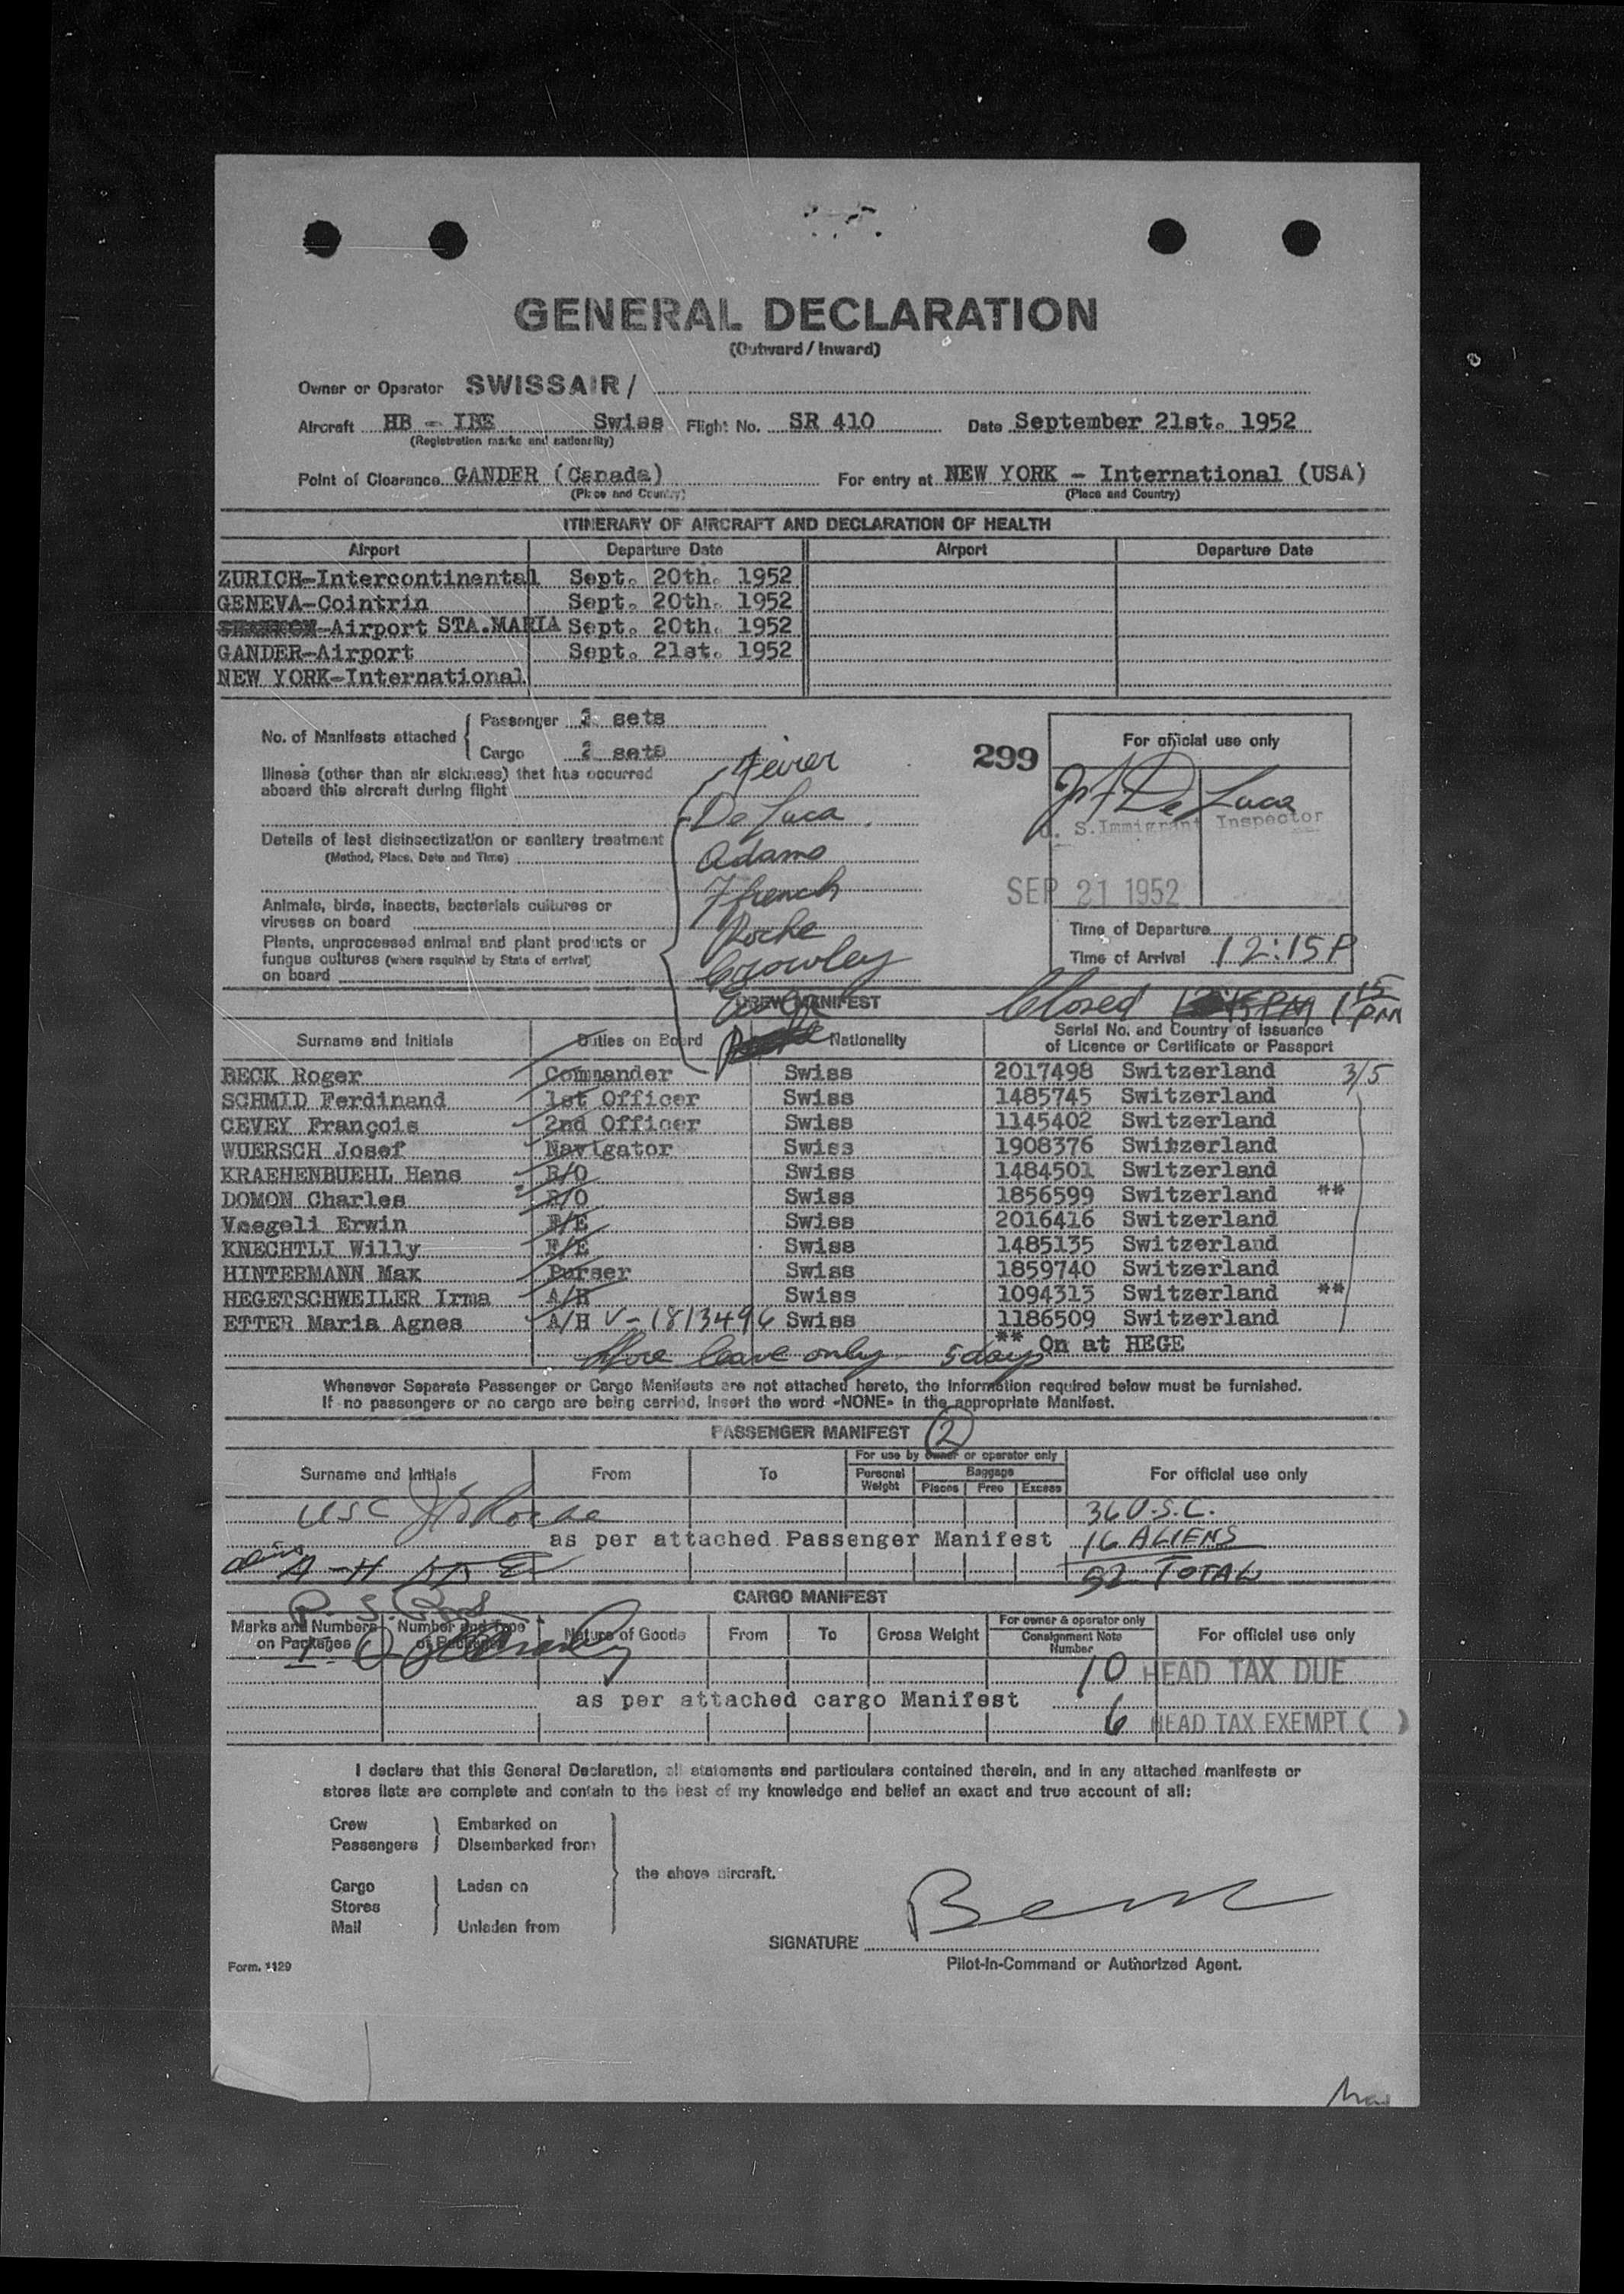 GENERAL DECLARATION
(Outward / Inward)
Owner or Operator SWISSAIR/
Aircraft HB - IBE Swiss Flight No. SR 410 Date September 21st. 1952
(Registration marks and nationality)
Point of Clearance GANDER (Canada) For entry at NEW YORK - International (USA)
(Place and Country) (Place and Country)
ITINERARY OF AIRCRAFT AND DECLARATION OF HEALTH
Airport Departure Date Airport Departure Date
ZURICH-Intercontinental Sept. 20th. 1952
GENEVA-Cointrin Sept. 20th. 1952
-Airport STA.MARIA Sept. 20th. 1952
GANDER-Airport Sept. 21st. 1952
NEW YORK-International
No. of Manifests attached
Passenger sets
Cargo 2 sets
299
For official use only
Illness (other than air sickness) that has occurred
aboard this aircraft during flight
De Luca
De Luca
U. S. Immigrant Inspector
Details of last disinsectization or sanitary treatment
(Method, Place, Date and Time)
Adams
French
SEP 21 1952
Animals, birds, insects, bacterials cultures or
viruses on board
Roche
Time of Departure
Plants, unprocessed animal and plant products or
fungus cultures (where required by State of arrival)
on board
Crowley
Time of Arrival 12:15P
CREW MANIFEST
Closed 1 15 PM
Surname and Initials Duties on Board Nationality Serial No. and Country of Issuance
of Licence or Certificate or Passport
BECK Roger Commander Swiss 2017498 Switzerland 3/5
SCHMID Ferdinand 1st Officer Swiss 1485745 Switzerland
CEVEY François 2nd Officer Swiss 1145402 Switzerland
WUERSCH Josef Navigator Swiss 1908376 Switzerland
KRAEHENBUEHL Hans R/O Swiss 1484501 Switzerland
DOMON Charles R/O Swiss 1856599 Switzerland **
Voegeli Erwin F/E Swiss 2016416 Switzerland
KNECHTLI Willy F/E Swiss 1485135 Switzerland
HINTERMANN Max Purser Swiss 1859740 Switzerland
HEGETSCHWEILER Irma A/H Swiss 1094313 Switzerland **
ETTER Maria Agnes A/H V-1813496 Swiss 1186509 Switzerland
leave only 5 days ** On at HEGE
Whenever Separate Passenger or Cargo Manifests are not attached hereto, the information required below must be furnished.
If no passengers or no cargo are being carried, insert the word «NONE» in the appropriate Manifest.
PASSENGER MANIFEST 2
Surname and Initials From To For use by owner or operator only For official use only
Personal Weight Baggage
Pieces Free Excess
USC Roche 36 U.S.C.
as per attached Passenger Manifest 16 ALIENS
52 TOTAL
CARGO MANIFEST
Marks and Numbers on Packages Number and Type of Packages Nature of Goods From To Gross Weight For owner & operator only Consignment Note Number For official use only
10 HEAD TAX DUE
as per attached cargo Manifest
6 HEAD TAX EXEMPT ( )
I declare that this General Declaration, all statements and particulars contained therein, and in any attached manifests or
stores lists are complete and contain to the best of my knowledge and belief an exact and true account of all:
Crew Embarked on
Passengers Disembarked from
the above aircraft.
Cargo Laden on
Stores
Mail Unladen from
SIGNATURE
Form. 1129
Pilot-In-Command or Authorized Agent.